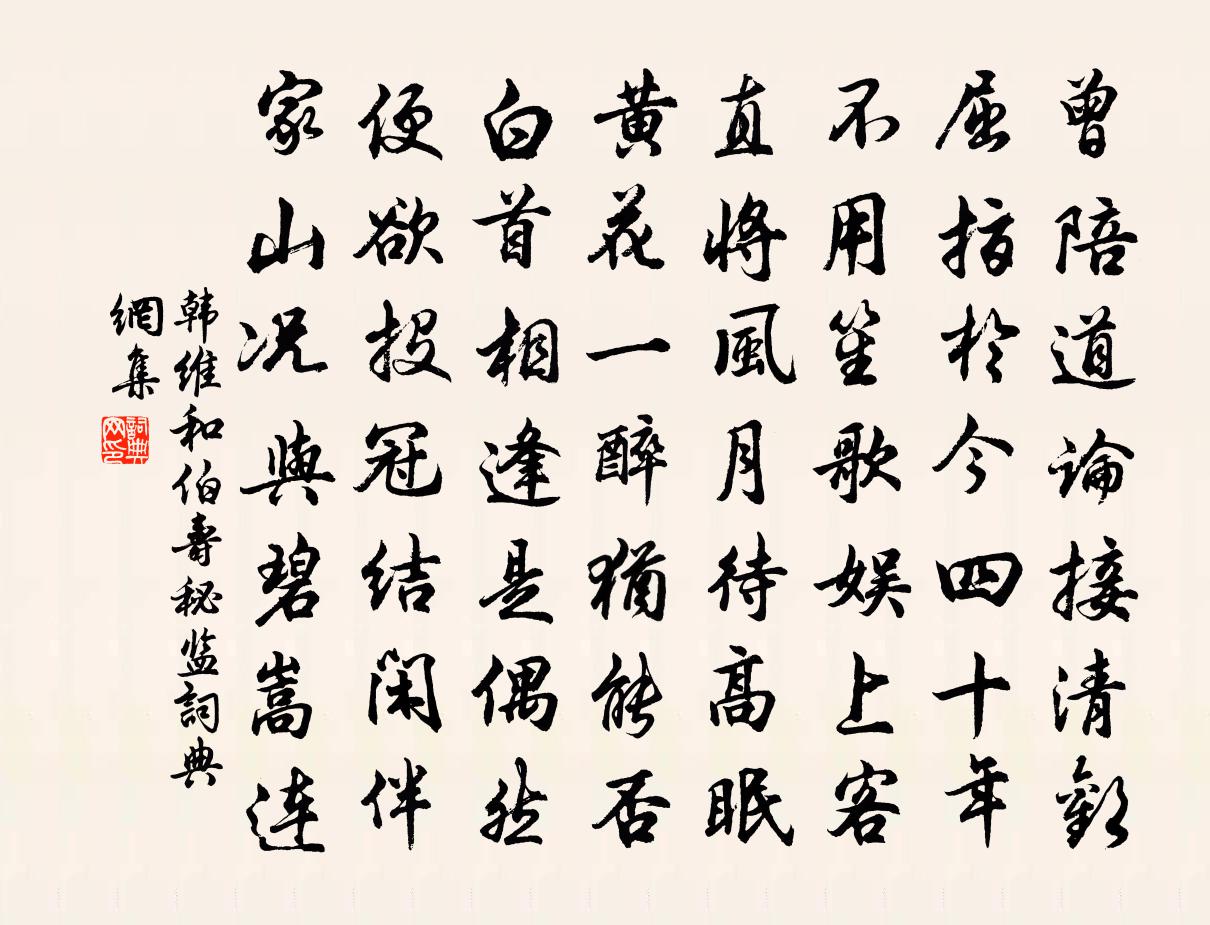 曾陪道論接清歡
屈指於今四十年
不用笙歌娱上客
直將風月待高眠
黄花一醉猶能否
白首相逢是偶然
便欲投冠结閑伴
家山况與碧嵩连
韩维和伯壽秘监詞典
網集
詞典
网印